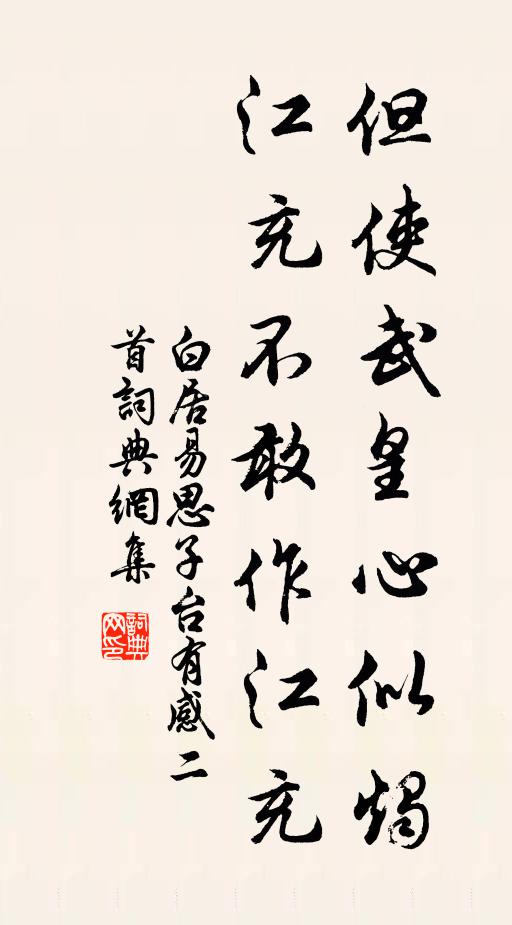 但使武皇心似燭
江充不敢作江充
白居易思子台有感二
首詞典網集
詞典网印